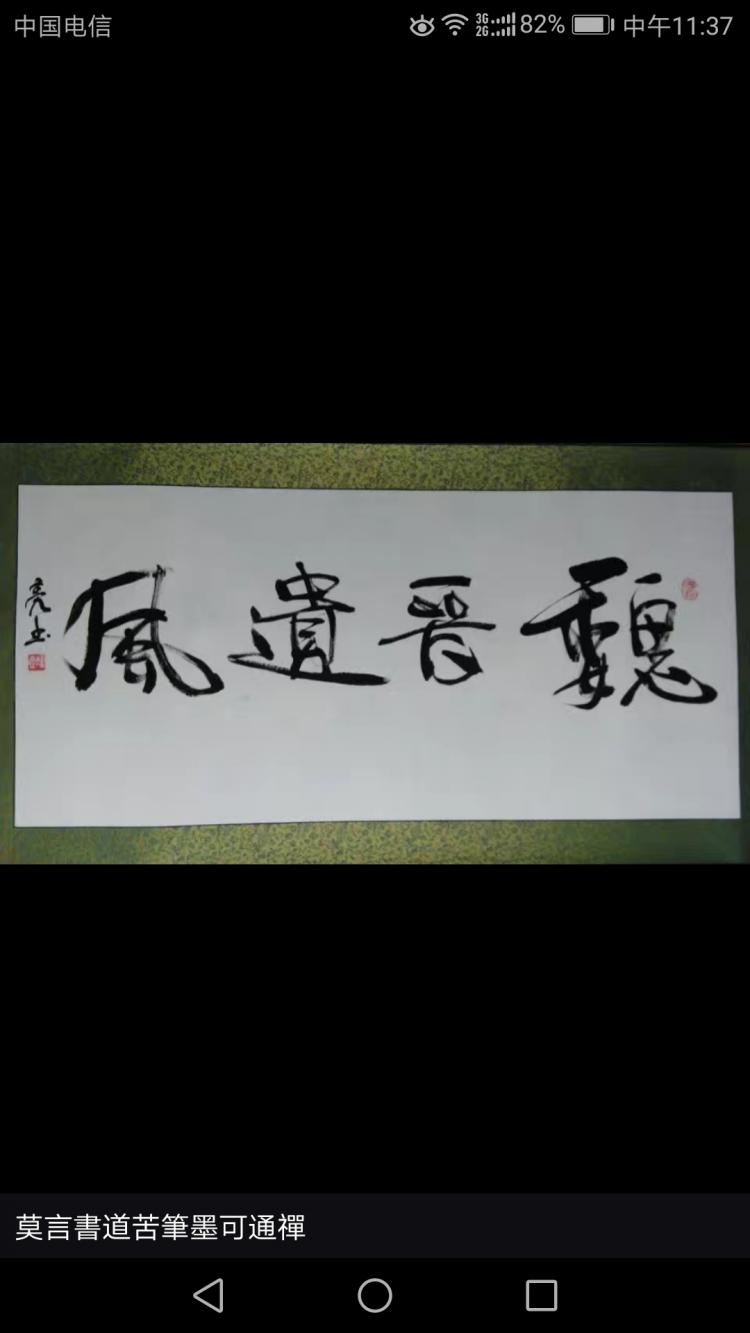 中国电信 3G 2G 82% 中午11:37
魏晉遺風
亮书
莫言書道苦筆墨可通禪